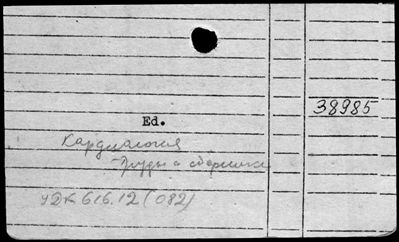 38985
Ed.
Кардиология
Труды и сборники
УДК 616.12 (082)